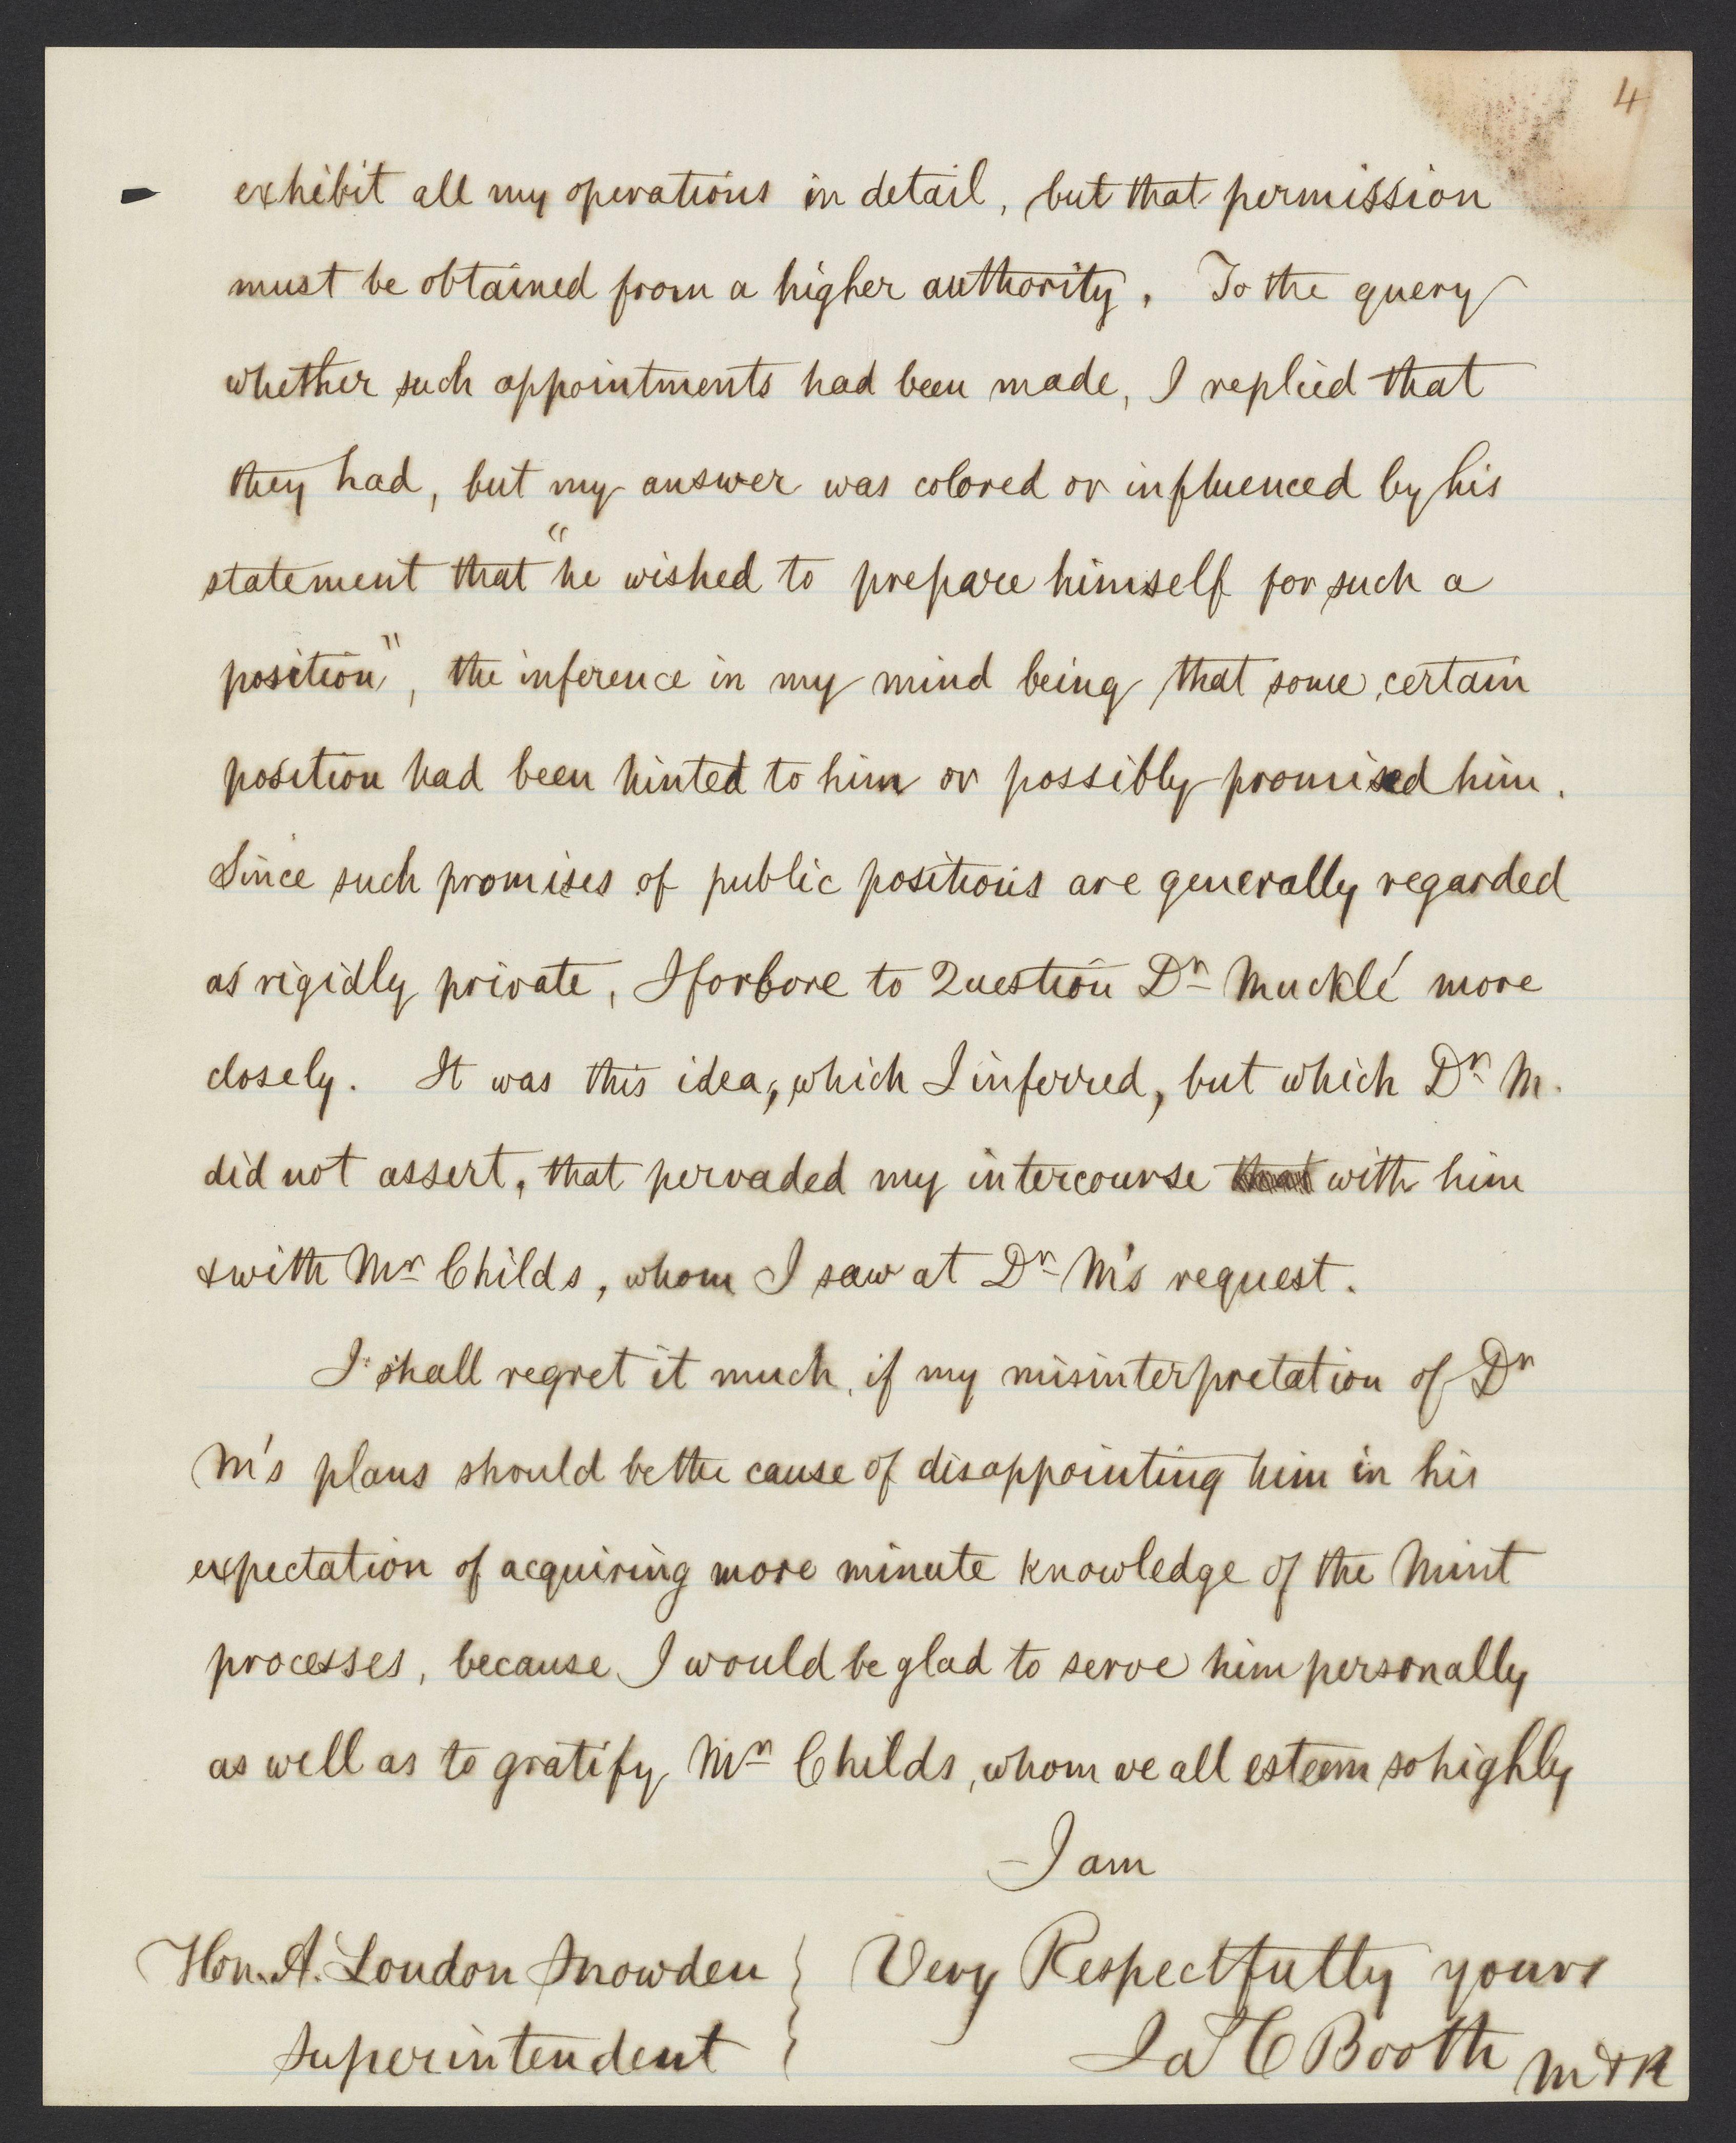 4
exhibit all my operations in detail, but that permission
must be obtained from a higher authority. To the query
whether such appointments had been made, I replied that
they had, but my answer was colored or influenced by his
statement that "he wished to prepare himself for such a
position", the inference in my mind being that some certain
position had been hinted to him or possibly promised him.
Since such promises of public positions are generally regarded
as rigidly private, I forbore to Question Dr Mucklé more
closely. It was this idea, which I inferred, but which Dr M.
did not assert, that pervaded my intercourse that with him
& with Mr Childs, whom I saw at Dr M's request.
I shall regret it much, if my misinterpretation of Dr
M's plans should be the cause of disappointing him in his
expectation of acquiring more minute knowledge of the Mint
processes, because I would be glad to serve him personally
as well as to gratify Mr Childs, whom we all esteem so highly
I am
Hon. A. Loudon Snowden } Very Respectfully yours
Superintendent } Jas C Booth M & R